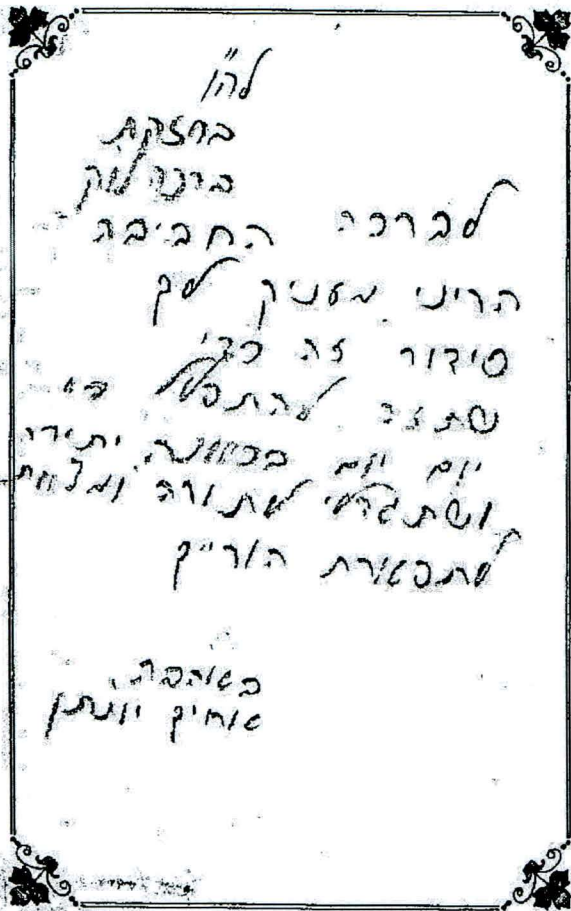 לה"ו
בחזקת
ברכה לוק
לברכה החביבה
הריני מעניק לך
סידור זה כדי
שתזכי להתפלל בו
יום יום בכוונה יתירה
ושתגדלי לתורה ומצוות
לתפארת הורייך
באהבה,
אחיך יונתן